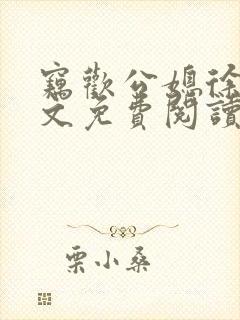 竊歡公媳徐
文免費閱讀
栗小桑